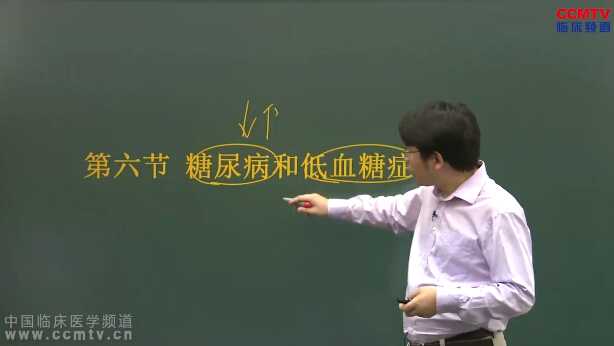 CCMTV
临床频道
第六节 糖尿病和低血糖症
中国临床医学频道
www.ccmtv.cn